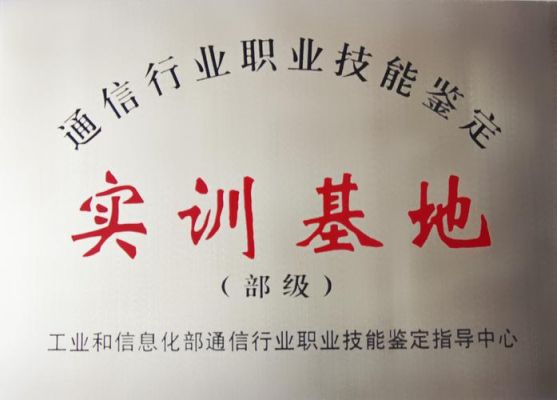 通信行业职业技能鉴定
实训基地
（部级）
工业和信息化部通信行业职业技能鉴定指导中心